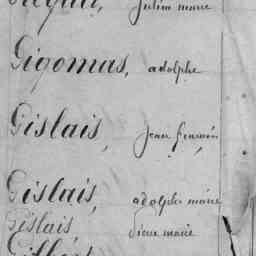 Julien marie
Gigomas, adolphe
Gislais, Jean françois
Gislais, adolphe marie
Gislais Pierre marie